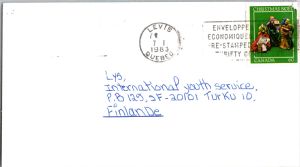 LEVIS
7 I
1983
QUEBEC
ENVELOPPE
ECONOMIQUE
PRE-STAMPED
THRIFTY
CHRISTMAS NOEL
CANADA 60
Lys,
International youth service,
P.B 125, SF-20101 Turku 10,
Finlande